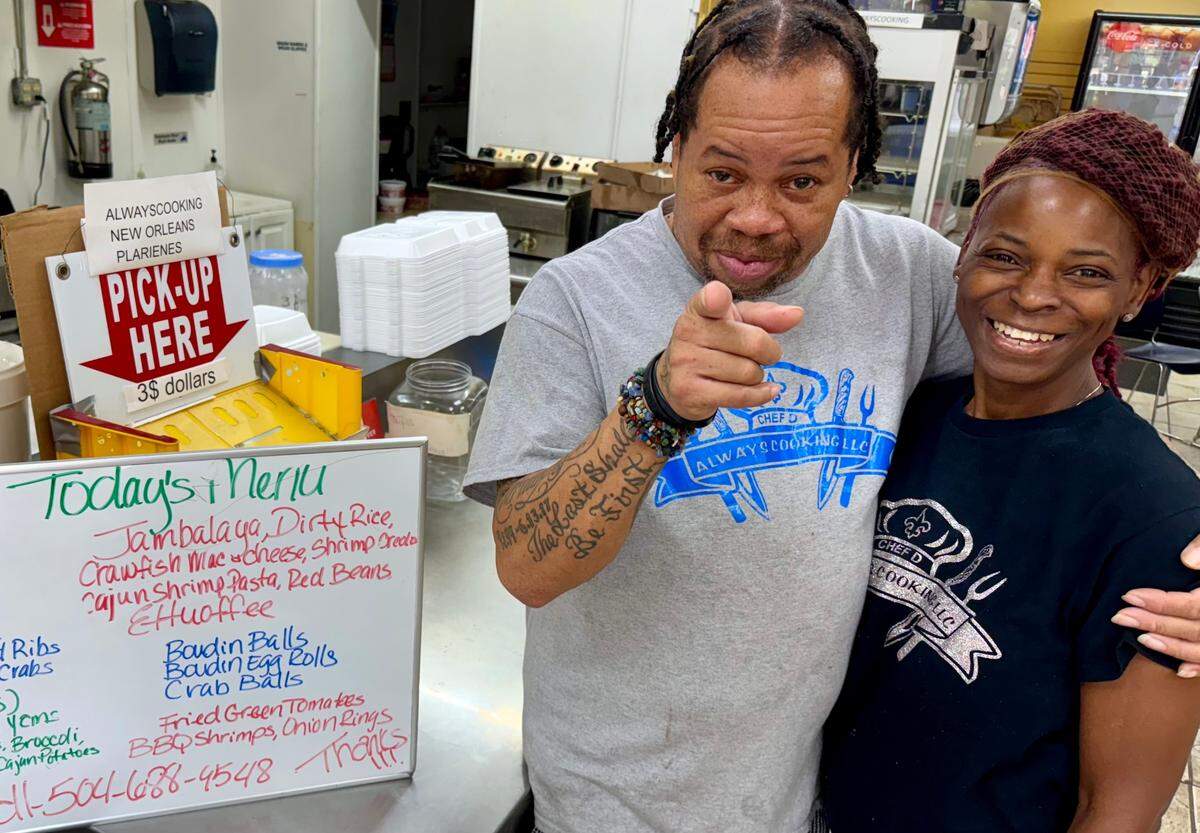 ALWAYSCOOKING
NEW ORLEANS
PLARIENES
PICK-UP
HERE
3$ dollars
Today's Menu
Jambalaya, Dirty Rice,
Crawfish Mac & cheese, Shrimp Creole
Cajun Shrimp Pasta, Red Beans
Ettuoffee
Ribs
Crabs
Boudin Balls
Boudin Egg Rolls
Crab Balls
Yems
Broccoli,
Cajun Potatoes
Fried Green Tomatoes
BBQ Shrimps, Onion Rings
Thanks
504-688-9548
The Last Shall
Be First
CHEF D
ALWAYSCOOKING LLC
CHEF D
SCOOKING LLC
YSCOOKING
Coca-Cola